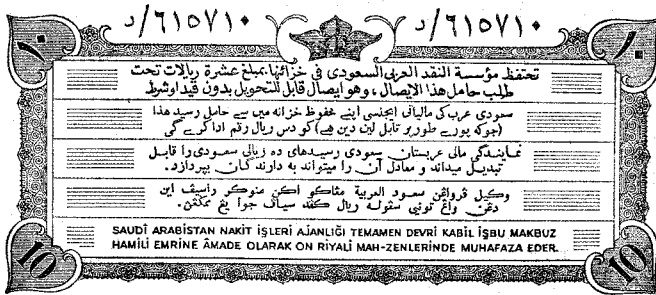 د/٦١٥٧١٠ د/٦١٥٧١٠
١٠ ١٠
تحتفظ مؤسسة النقد العربى السعودى فى خزائنها، بمبلغ عشرة ريالات تحت
طلب حامل هذا الايصال، وهو ايصال قابل للتحويل بدون قيد او شرط
سعودی عرب کی مالیاتی ایجنسی اپنے محفوظ خزانه میں سے حامل رسید هذا
(جوکه پورے طور پر قابل لین دین هے) کو دس ریال رقم ادا کرے گی
نمایندگی مالی عربستان سعودی رسیدهای ده ریالی سعودی را قابل
تبدیل میداند و معادل آن را میتواند به دارنده کان بپردازد.
وكيل سعود العربية اكن راسيف اين
دڠن ريال
SAUDİ ARABİSTAN NAKİT İŞLERİ AJANLIĞI TEMAMEN DEVRİ KABİL İŞBU MAKBUZ
HAMİLİ EMRİNE ÂMADE OLARAK ON RİYALİ MAH-ZENLERİNDE MUHAFAZA EDER.
10 10